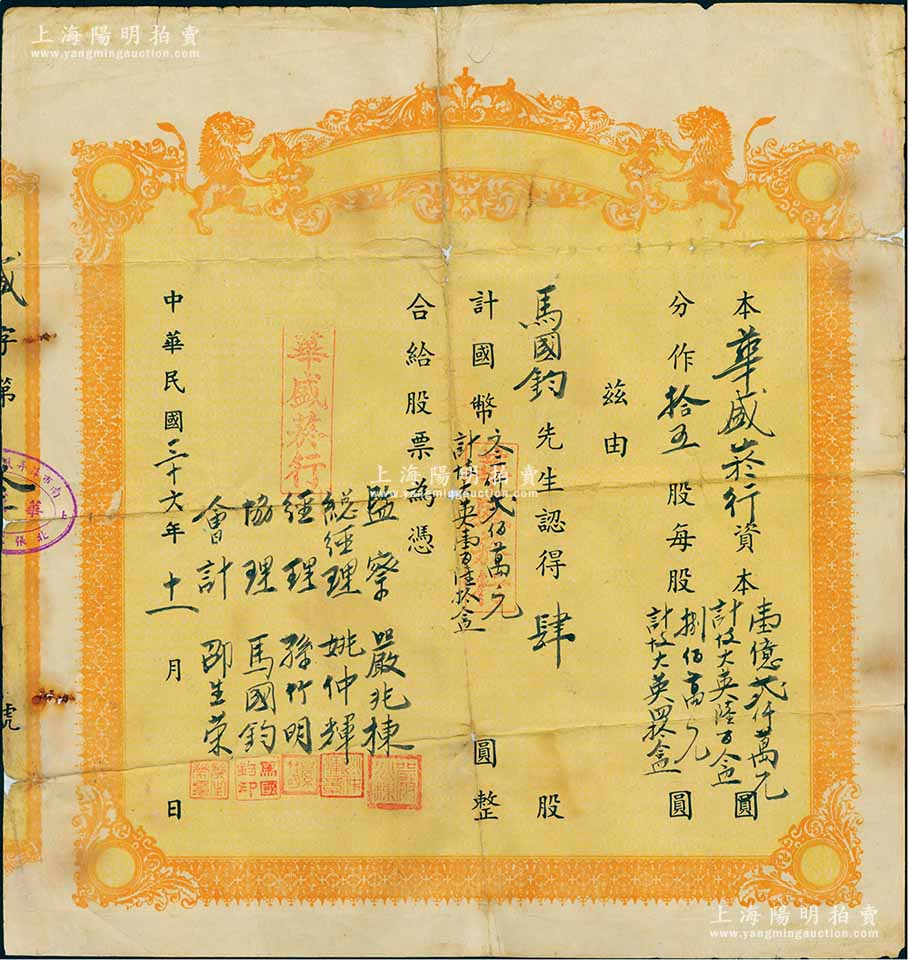 上海陽明拍賣
www.yangmingauction.com
本華盛菸行資本壹億貳仟萬元圓
計值大英陸百盒
分作拾五股每股捌佰萬元圓
計值大英四拾盒
茲由
馬國鈞先生認得肆股
計國幣叁仟貳佰萬元圓整
計值大英壹百陸拾盒
合給股票為憑
監察 嚴兆棟
總經理 姚仲輝
經理 孫竹明
協理 馬國鈞
會計 邵生榮
華盛菸行
中華民國三十六年十一月 日
馬國鈞印
盛字第
號
上海陽明拍賣
www.yangmingauction.com
上海陽明拍賣
www.yangmingauction.com